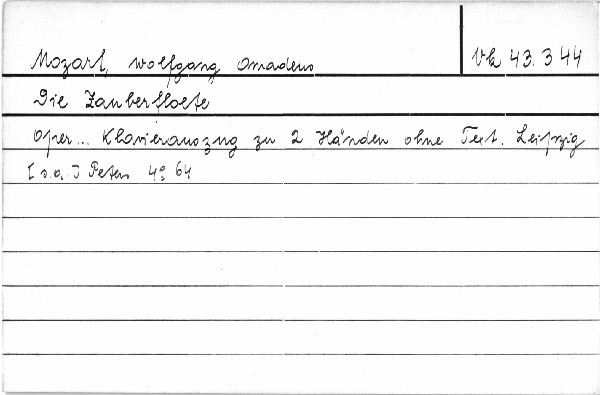 Mozart, Wolfgang Amadeus
Vk 43.344
Die Zauberfloete
Oper... Klavierauszug zu 2 Händen ohne Text. Leipzig
[s.a.] Peters 4° 64